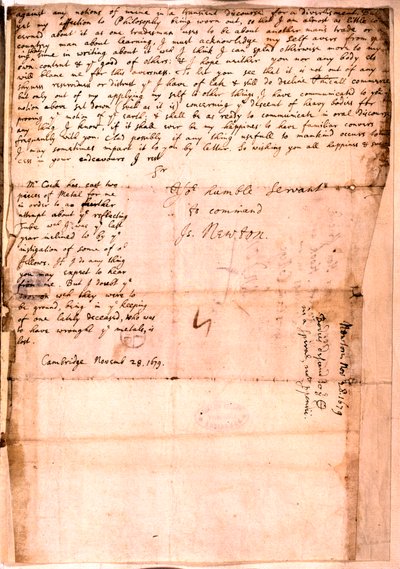 against any notions of mine in so transient discourse for a divertisement. But
yet my affection to Philosophy being worn out, so that I am almost as little con-
cerned about it as one tradesman uses to be about another man's trade or a
country man about learning, I must acknowledge my self avers from
spending time in writing about it wch I think I can spend otherwise more to my
own content & ye good of others: & I hope neither you nor any body els
will blame me for this aversness. To let you see that it is not out of any
shyness reservedness or distrust yt I have of late & still do decline commerce
but only out of my applying my self to other things I have communicated to you ye
notion above set down (such as it is) concerning ye descent of heavy bodies for
proving ye motion of ye earth; & shall be as ready to communicate in oral discourse
any thing I know, if it shall ever be my happiness to have familiar convers
frequently with you. And possibly if any thing usefull to mankind occurs to me
I may sometimes impart it to you by letter. So wishing you all happiness & suc-
cess in your endeavours I rest
Sr
Yor humble Servant
to command
Is. Newton.
Mr Cock has cast two
pieces of Metal for me
in order to a further
attempt about ye reflecting
Tube wch I was ye last
year inclined to by ye
instigation of some of or
fellows. If I do any thing
you may expect to hear
from me. But I doubt ye
on wch they were to
be ground, being in ye keeping
of one lately deceased, who was
to have wrought ye metals, is
lost.
Cambridge Novemb 28. 1679.
Newton Nov 28. 1679